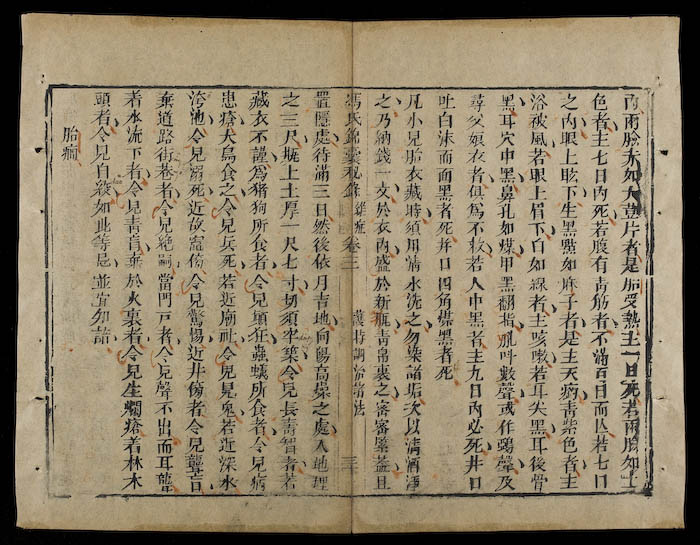 內兩臉赤如大荳片者是胎受熱主一日死若兩臉如土
色者主七日內死若腹有青筋者不滿百日而亾若七日
之內眼上眩下生黑點如麻子者是主天病青紫色者主
浴被風若眼上眉下白如線者主咳嗽若耳尖黑耳後骨
黑耳穴中黑鼻孔如煤甲黑翻指吼叫數聲或作鵶聲及
尋父娘衣者俱爲不救若人中黑者主九日內必死井口
吐白沫而面黑者死井口四角楪黑者死
凡小兒胞衣藏時須用清水洗之勿染諸垢次以清酒淨
之乃納錢一文於衣內盛於新瓶青帛裹之密密緊蓋且
馮氏錦囊秘錄 雜症 卷三 護持調治諸法 三十
置隱處待滿三日然後依月吉地向陽高燥之處入地埋
之三尺瓶上土厚一尺七寸切須牢築令兒長壽智者若
藏衣不謹爲猪狗所食者令兒顛狂蟲蟻所食者令兒病
患瘡犬鳥食之令兒兵死若近廟社令兒見鬼若近深水
洿池令兒溺死近故竈傍令兒驚惕近井傍者令兒聾盲
棄道路街巷者令兒絕嗣當門戸者令兒聲不出而耳聾
者水流下者令兒青盲棄於火裏者令兒生爛瘡着林木
頭者令兒自殺如此等忌並宜知諸
胎癇